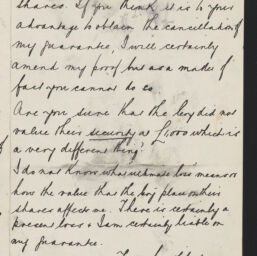 shares. If you think it is to your
advantage to obtain the cancellation of
my guarantee, I will certainly
amend my proof but as a matter of
fact you cannot do so
Are you sure that the Coy did not
value their security at £1000 which is
a very different thing?
I do not know what ultimate loss means or
how the value that the Coy place on their
shares affects me. There is certainly a
present loss & I am certainly liable on
my guarantee.